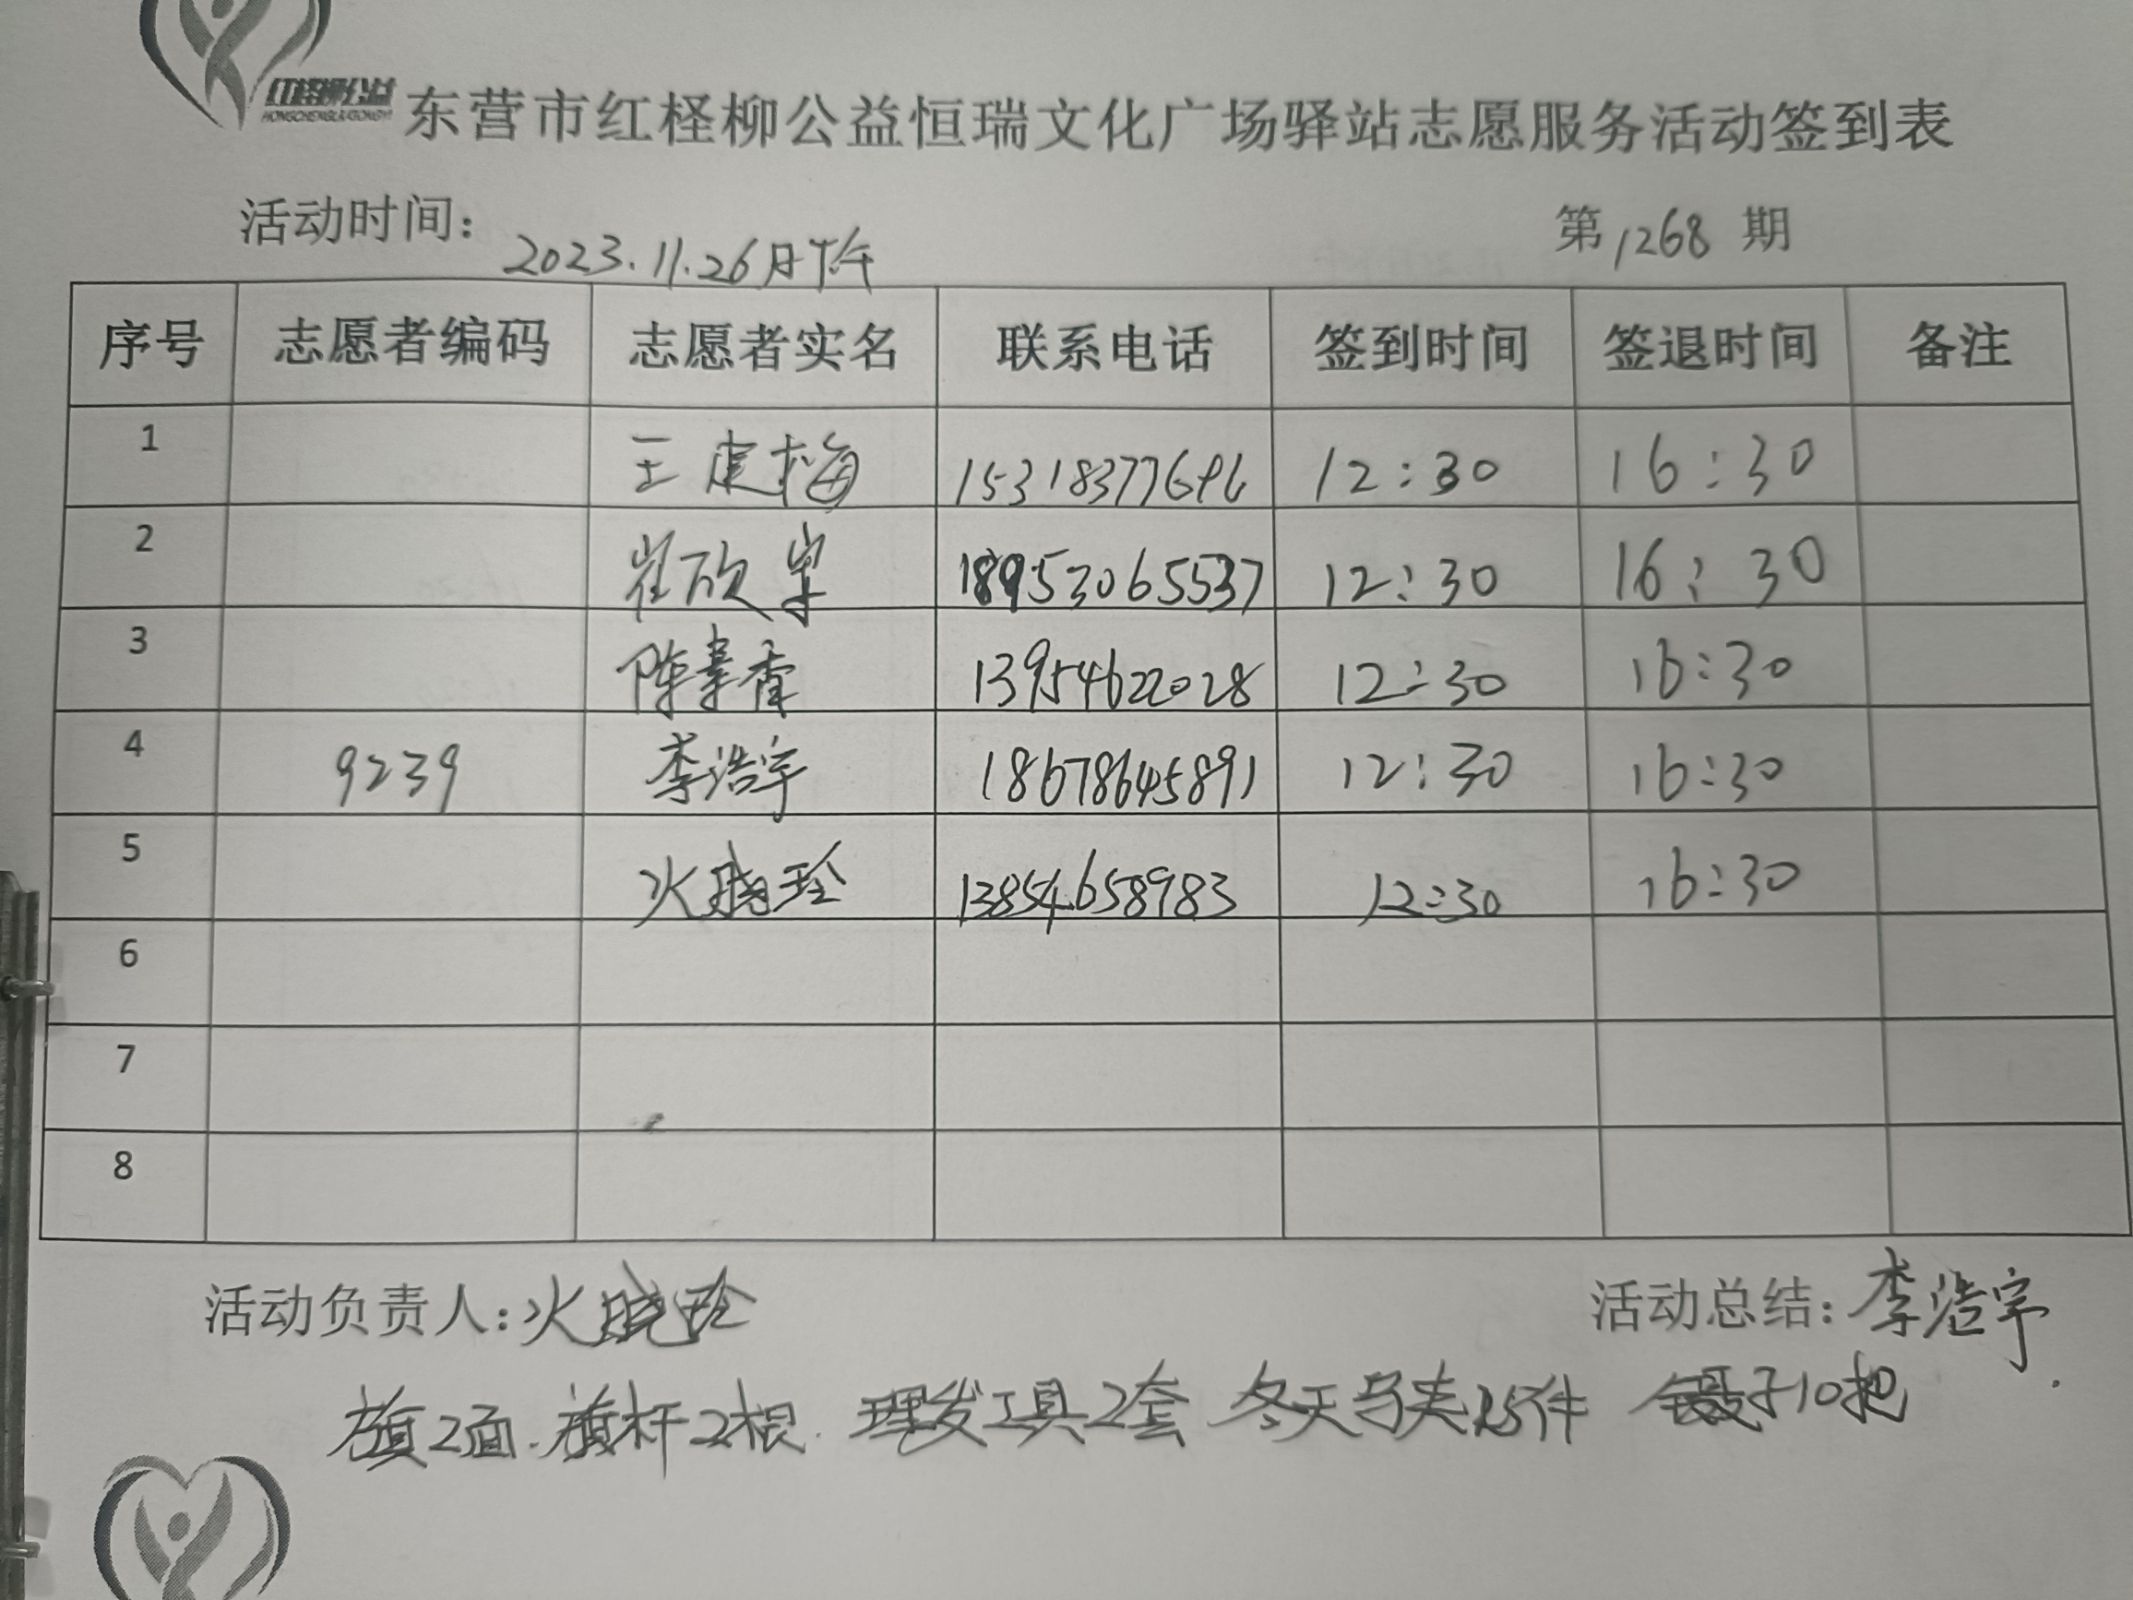 红柽柳公益
HONGCHENGLIUGONGYI
东营市红柽柳公益恒瑞文化广场驿站志愿服务活动签到表
活动时间：2023.11.26日下午 第1268期
序号 志愿者编码 志愿者实名 联系电话 签到时间 签退时间 备注
1 王 梅 15318377696 12:30 16:30
2 崔欣 18953065537 12:30 16:30
3 陈 香 13954622028 12:30 16:30
4 9239 李浩宇 18678645891 12:30 16:30
5 火晓玲 13854658983 12:30 16:30
6
7
8
活动负责人：火晓玲 活动总结：李浩宇
旗2面.旗杆2根.理发工具2套 冬天马夹25件 镊子10把